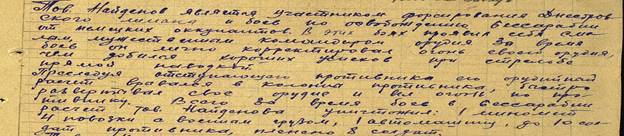 Тов. Найденов является участником форсирования Днестров
ского лимана и боев по освобождению Бессарабии
от немецких оккупантов. В этих боях проявил себя сме
лым, мужественным командиром орудия. За время
боев он лично корректировал огонь своего орудия,
чем добился хороших успехов при стрельбе
прямой наводкой.
Преследуя отступающего противника его орудийный
расчет врывался в колонны противника, быстро
развертывал свое орудие и вел огонь по про
тивнику. Всего за время боев в Бессарабии
расчет тов. Найденова уничтожил: 1 миномет
4 повозки с военным грузом, 1 автомашину, до 10 сол
дат противника, пленено 8 солдат.